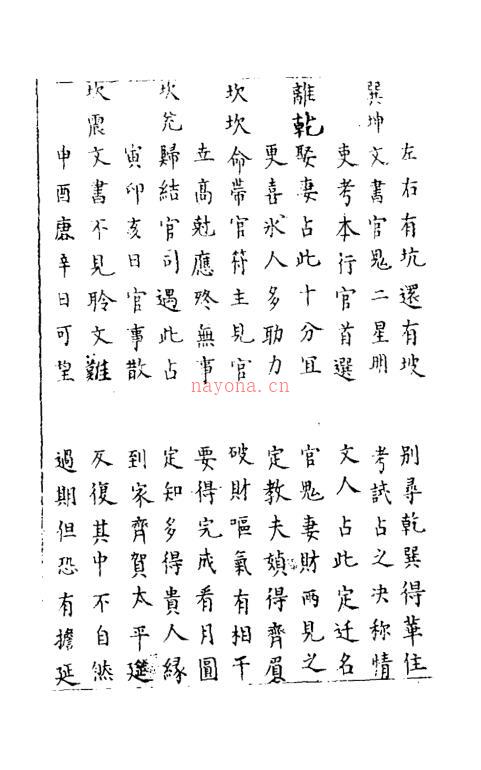 左右有坑還有坡 別尋乾巽得華住
巽坤 文書官鬼二星明 考試占之决称情
吏考本行官首選 文人占此定迁名
離乾 娶妻占此十分宜 官鬼妻財两見之
更喜氷人多助力 定教夫媍得齊眉
坎坎 命帶官符主見官 破財嘔氣有相干
立高尅應终無事 要得完成看月圓
坎兊 歸結官司遇此占 定知多得貴人緣
寅卯亥日官事散 到家齊賀太平
坎震 文書不見聆文難 反復其中不自然
申酉庚辛日可望 過期但恐有擔延
nayona.cn